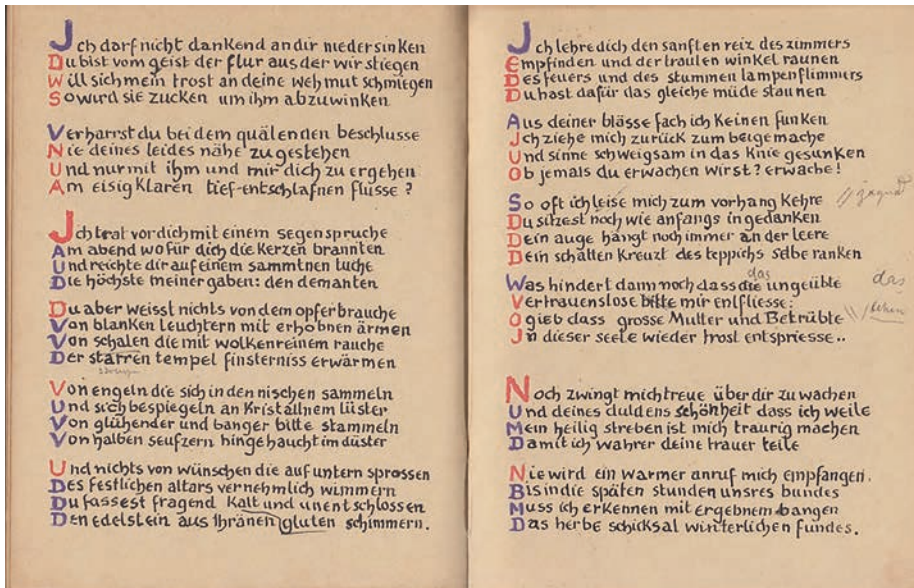 Jch darf nicht dankend an dir niedersinken
Du bist vom geist der flur aus der wir stiegen
Will sich mein trost an deine wehmut schmiegen
So wird sie zucken um ihm abzuwinken
Verharrst du bei dem quälenden beschlusse
Nie deines leides nähe zu gestehen
Und nur mit ihm und mir dich zu ergehen
Am eisig klaren tief-entschlafnen flusse?
Jch trat vor dich mit einem segenspruche
Am abend wo für dich die kerzen brannten
Und reichte dir auf einem sammtnen tuche
Die höchste meiner gaben: den demanten
Du aber weisst nichts von dem opferbrauche
Von blanken leuchtern mit erhobnen ärmen
Von schalen die mit wolkenreinem rauche
Der starren tempel finsterniss erwärmen
strengen
Von engeln die sich in den nischen sammeln
Und sich bespiegeln an kristallnem lüster
Von glühender und banger bitte stammeln
Von halben seufzern hingehaucht im düster
Und nichts von wünschen die auf untern sprossen
Des festlichen altars vernehmlich wimmern
Du fassest fragend kalt und unentschlossen
Den edelstein aus thränen gluten schimmern.
Jch lehre dich den sanften reiz des zimmers
Empfinden und der traulen winkel raunen
Des feuers und des stummen lampenflimmers
Du hast dafür das gleiche müde staunen
Aus deiner blässe fach ich keinen funken
Jch ziehe mich zurück zum beigemache
Und sinne schweigsam in das knie gesunken
Ob jemals du erwachen wirst? erwache!
So oft ich leise mich zum vorhang kehre
Du sitzest noch wie anfangs in gedanken
Dein auge hängt noch immer an der leere
Dein schatten kreuzt des teppichs selbe ranken
das
Was hindert dann noch dass die ungeübte das
Vertrauenslose bitte mir entfliesse:
O gieb dass grosse Mutter und Betrübte
Jn dieser seele wieder trost entspriesse..
Noch zwingt mich treue über dir zu wachen
Und deines duldens schönheit dass ich weile
Mein heilig streben ist mich traurig machen
Damit ich wahrer deine trauer teile
Nie wird ein warmer anruf mich empfangen.
Bis in die späten stunden unsres bundes
Muss ich erkennen mit ergebnem bangen
Das herbe schicksal winterlichen fundes.